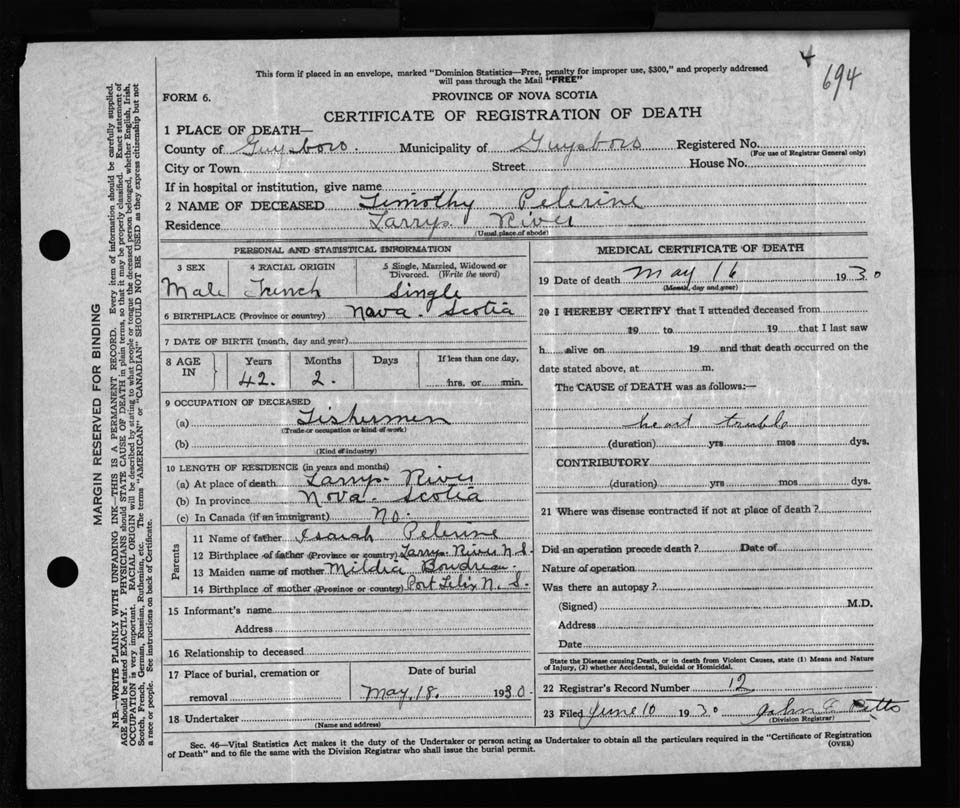 694
This form if placed in an envelope, marked "Dominion Statistics—Free, penalty for improper use, $300," and properly addressed
will pass through the Mail "FREE"
FORM 6.
PROVINCE OF NOVA SCOTIA
CERTIFICATE OF REGISTRATION OF DEATH
1 PLACE OF DEATH—
County of Guysboro. Municipality of Guysboro Registered No.
(For use of Registrar General only)
City or Town Street House No.
If in hospital or institution, give name
2 NAME OF DECEASED Timothy Pelerine
Residence Larrys River
(Usual place of abode)
PERSONAL AND STATISTICAL INFORMATION
3 SEX 4 RACIAL ORIGIN 5 Single, Married, Widowed or
Divorced. (Write the word)
Male French Single
6 BIRTHPLACE (Province or country) Nova Scotia
7 DATE OF BIRTH (month, day and year)
8 AGE IN Years Months Days If less than one day,
42. 2. hrs. or min.
9 OCCUPATION OF DECEASED
(a) Fishermen
(Trade or occupation or kind of work)
(b)
(Kind of industry)
10 LENGTH OF RESIDENCE (in years and months)
(a) At place of death Larrys River
(b) In province Nova Scotia
(c) In Canada (if an immigrant) no.
Parents
11 Name of father Isaiah Pelerine
12 Birthplace of father (Province or country) Larrys River N. S.
13 Maiden name of mother Mildia Boudreau
14 Birthplace of mother (Province or country) Port Felix N. S.
15 Informant's name
Address
16 Relationship to deceased
17 Place of burial, cremation or Date of burial
removal May 18. 1930.
18 Undertaker
(Name and address)
MEDICAL CERTIFICATE OF DEATH
19 Date of death May 16 1930
(Month, day and year)
20 I HEREBY CERTIFY that I attended deceased from
19 to 19 that I last saw
h alive on 19 and that death occurred on the
date stated above, at m.
The CAUSE of DEATH was as follows:—
heart trouble
(duration) yrs mos dys.
CONTRIBUTORY
(duration) yrs mos dys.
21 Where was disease contracted if not at place of death?
Did an operation precede death? Date of
Nature of operation
Was there an autopsy?
(Signed) M.D.
Address
Date
State the Disease causing Death, or in death from Violent Causes, state (1) Means and Nature
of Injury, (2) whether Accidental, Suicidal or Homicidal.
22 Registrar's Record Number 12
23 Filed June 10 1930 John E Petts
(Division Registrar)
Sec. 46—Vital Statistics Act makes it the duty of the Undertaker or person acting as Undertaker to obtain all the particulars required in the "Certificate of Registration
of Death" and to file the same with the Division Registrar who shall issue the burial permit. (OVER)
MARGIN RESERVED FOR BINDING
N.B.—WRITE PLAINLY WITH UNFADING INK—THIS IS A PERMANENT RECORD. Every item of information should be carefully supplied.
AGE should be stated EXACTLY. PHYSICIANS should STATE CAUSE OF DEATH in plain terms, so that it may be properly classified. Exact statement of
OCCUPATION is very important. RACIAL ORIGIN will be described by stating to what people or tongue the deceased person belonged, whether English, Irish,
Scotch, French, German, Russian, Ruthenian, etc. The terms "AMERICAN" or "CANADIAN" SHOULD NOT BE USED as they express citizenship but not
a race or people. See instructions on back of Certificate.